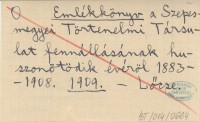 Emlékkönyv a Szepes-
megyei Történelmi Társu-
lat fennállásának hu-
szonötödik évéről 1883-
-1908. 1909. – Lőcse.